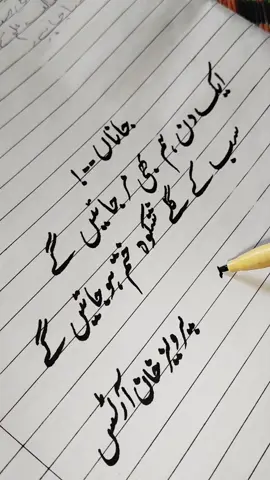 جاناں--!
ایک دن ہم بھی مر جائیں گے
سب کے گلے شکوہ ختم ہو جائیں گے
پرویز خان آرٹس